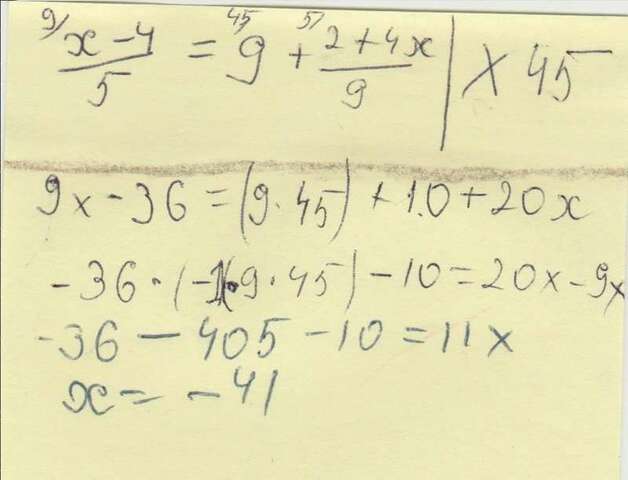 9/ x-4/5 = 45/ 9 + 5/ 2+4x/9 | × 45
9x - 36 = (9·45) + 10 + 20x
-36·(-1·9·45) - 10 = 20x - 9x
-36 - 405 - 10 = 11x
x = -41